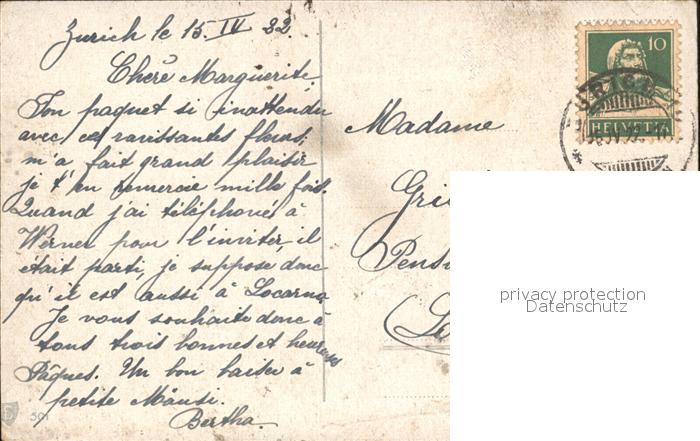 Zurich le 15. IV 32.
Chère Marguerite.
Ton paquet si inattendu
avec ces ravissantes fleurs,
m'a fait grand plaisir
je t'en remercie mille fois.
Quand j'ai téléphoné à
Werner pour l'inviter, il
était parti, je suppose donc
qu'il est aussi à Locarno
Je vous souhaite donc à
tous trois bonnes et heureuses
Pâques. Un bon baiser à
petite Mausi.
Bertha.
501
Madame
10
HELVETIA
privacy protection
Datenschutz